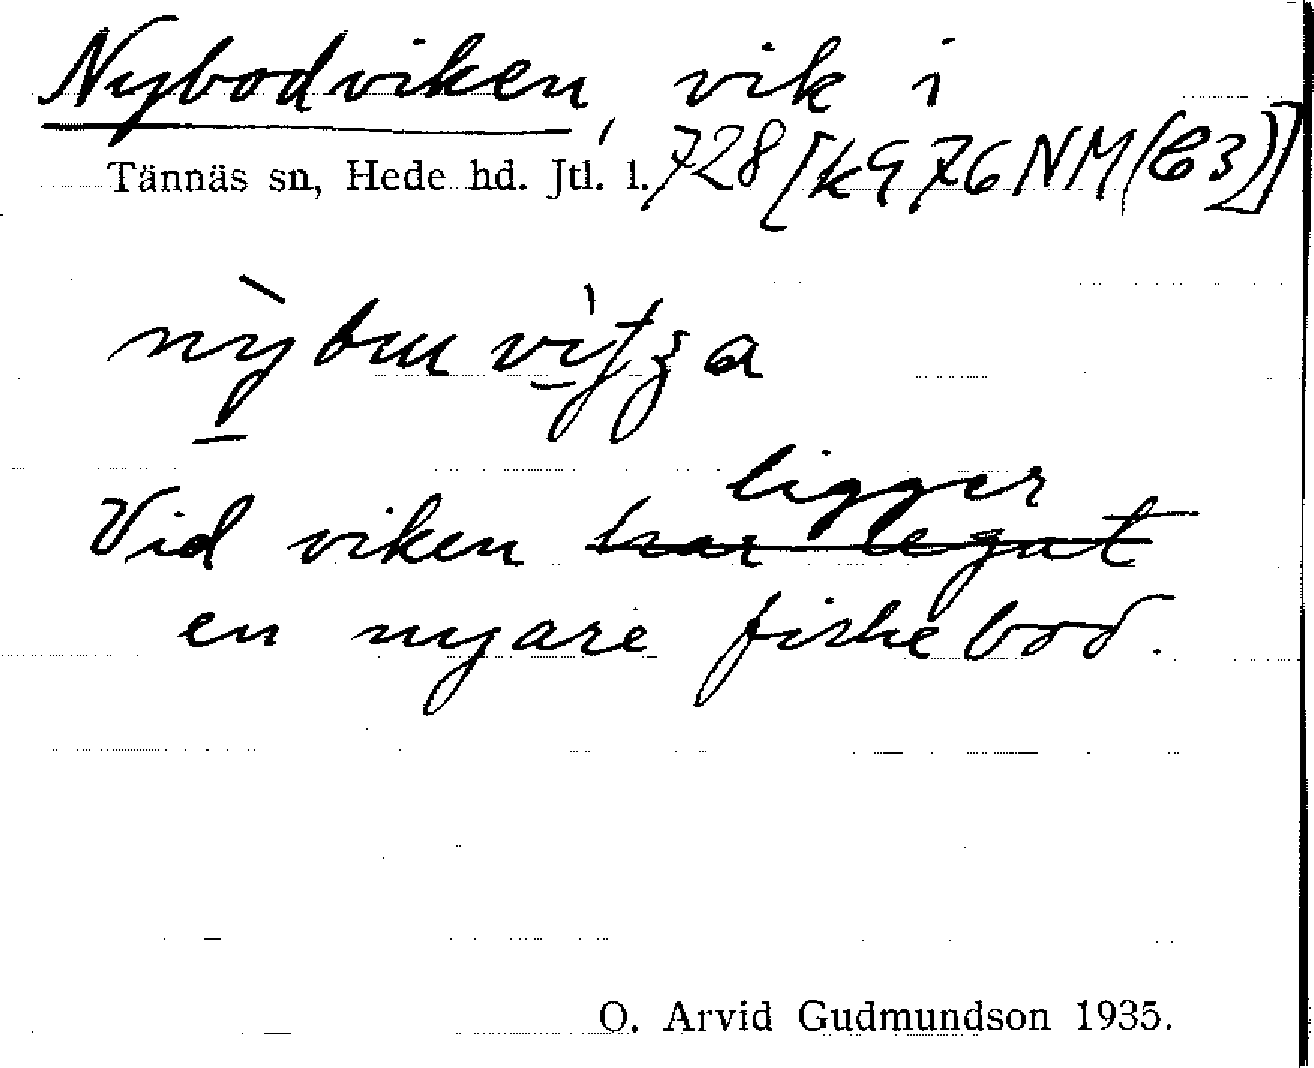 Nybodviken, vik i
Tännäs sn, Hede hd. Jtl. l. 728 [k976NM(C3)]
Vid viken ~~har legat~~ ligger
en nyare fiskebod.
O. Arvid Gudmundson 1935.